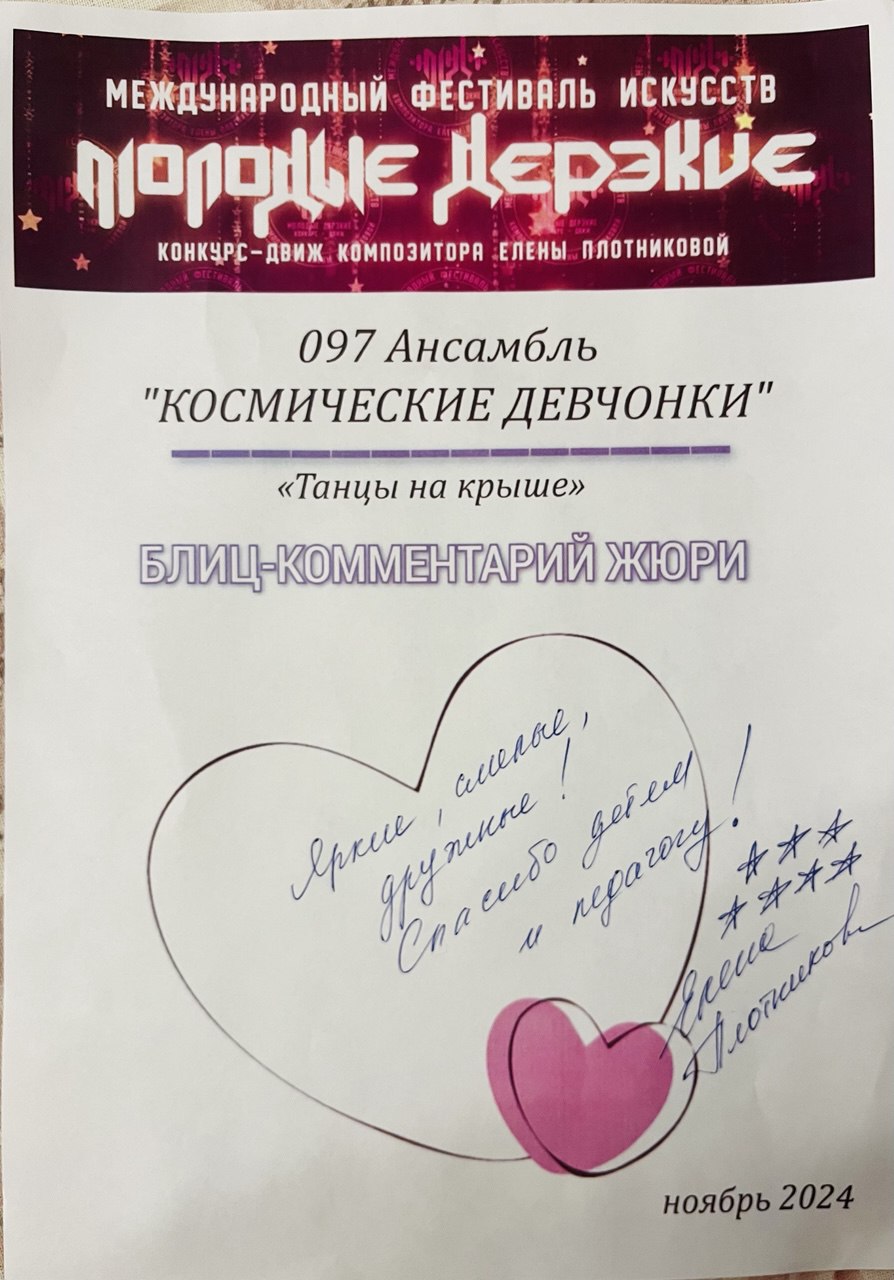 МЕЖДУНАРОДНЫЙ ФЕСТИВАЛЬ ИСКУССТВ
МОЛОДЫЕ ДЕРЗКИЕ
КОНКУРС-ДВИЖ КОМПОЗИТОРА ЕЛЕНЫ ПЛОТНИКОВОЙ
097 Ансамбль
"КОСМИЧЕСКИЕ ДЕВЧОНКИ"
«Танцы на крыше»
БЛИЦ-КОММЕНТАРИЙ ЖЮРИ
Яркие, смелые,
дружные!
Спасибо детям
и педагогу!
Елена
Плотникова
ноябрь 2024